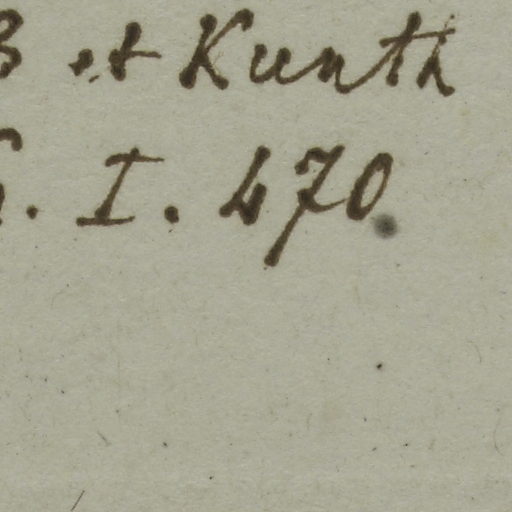 B et Kunth
. I. 470